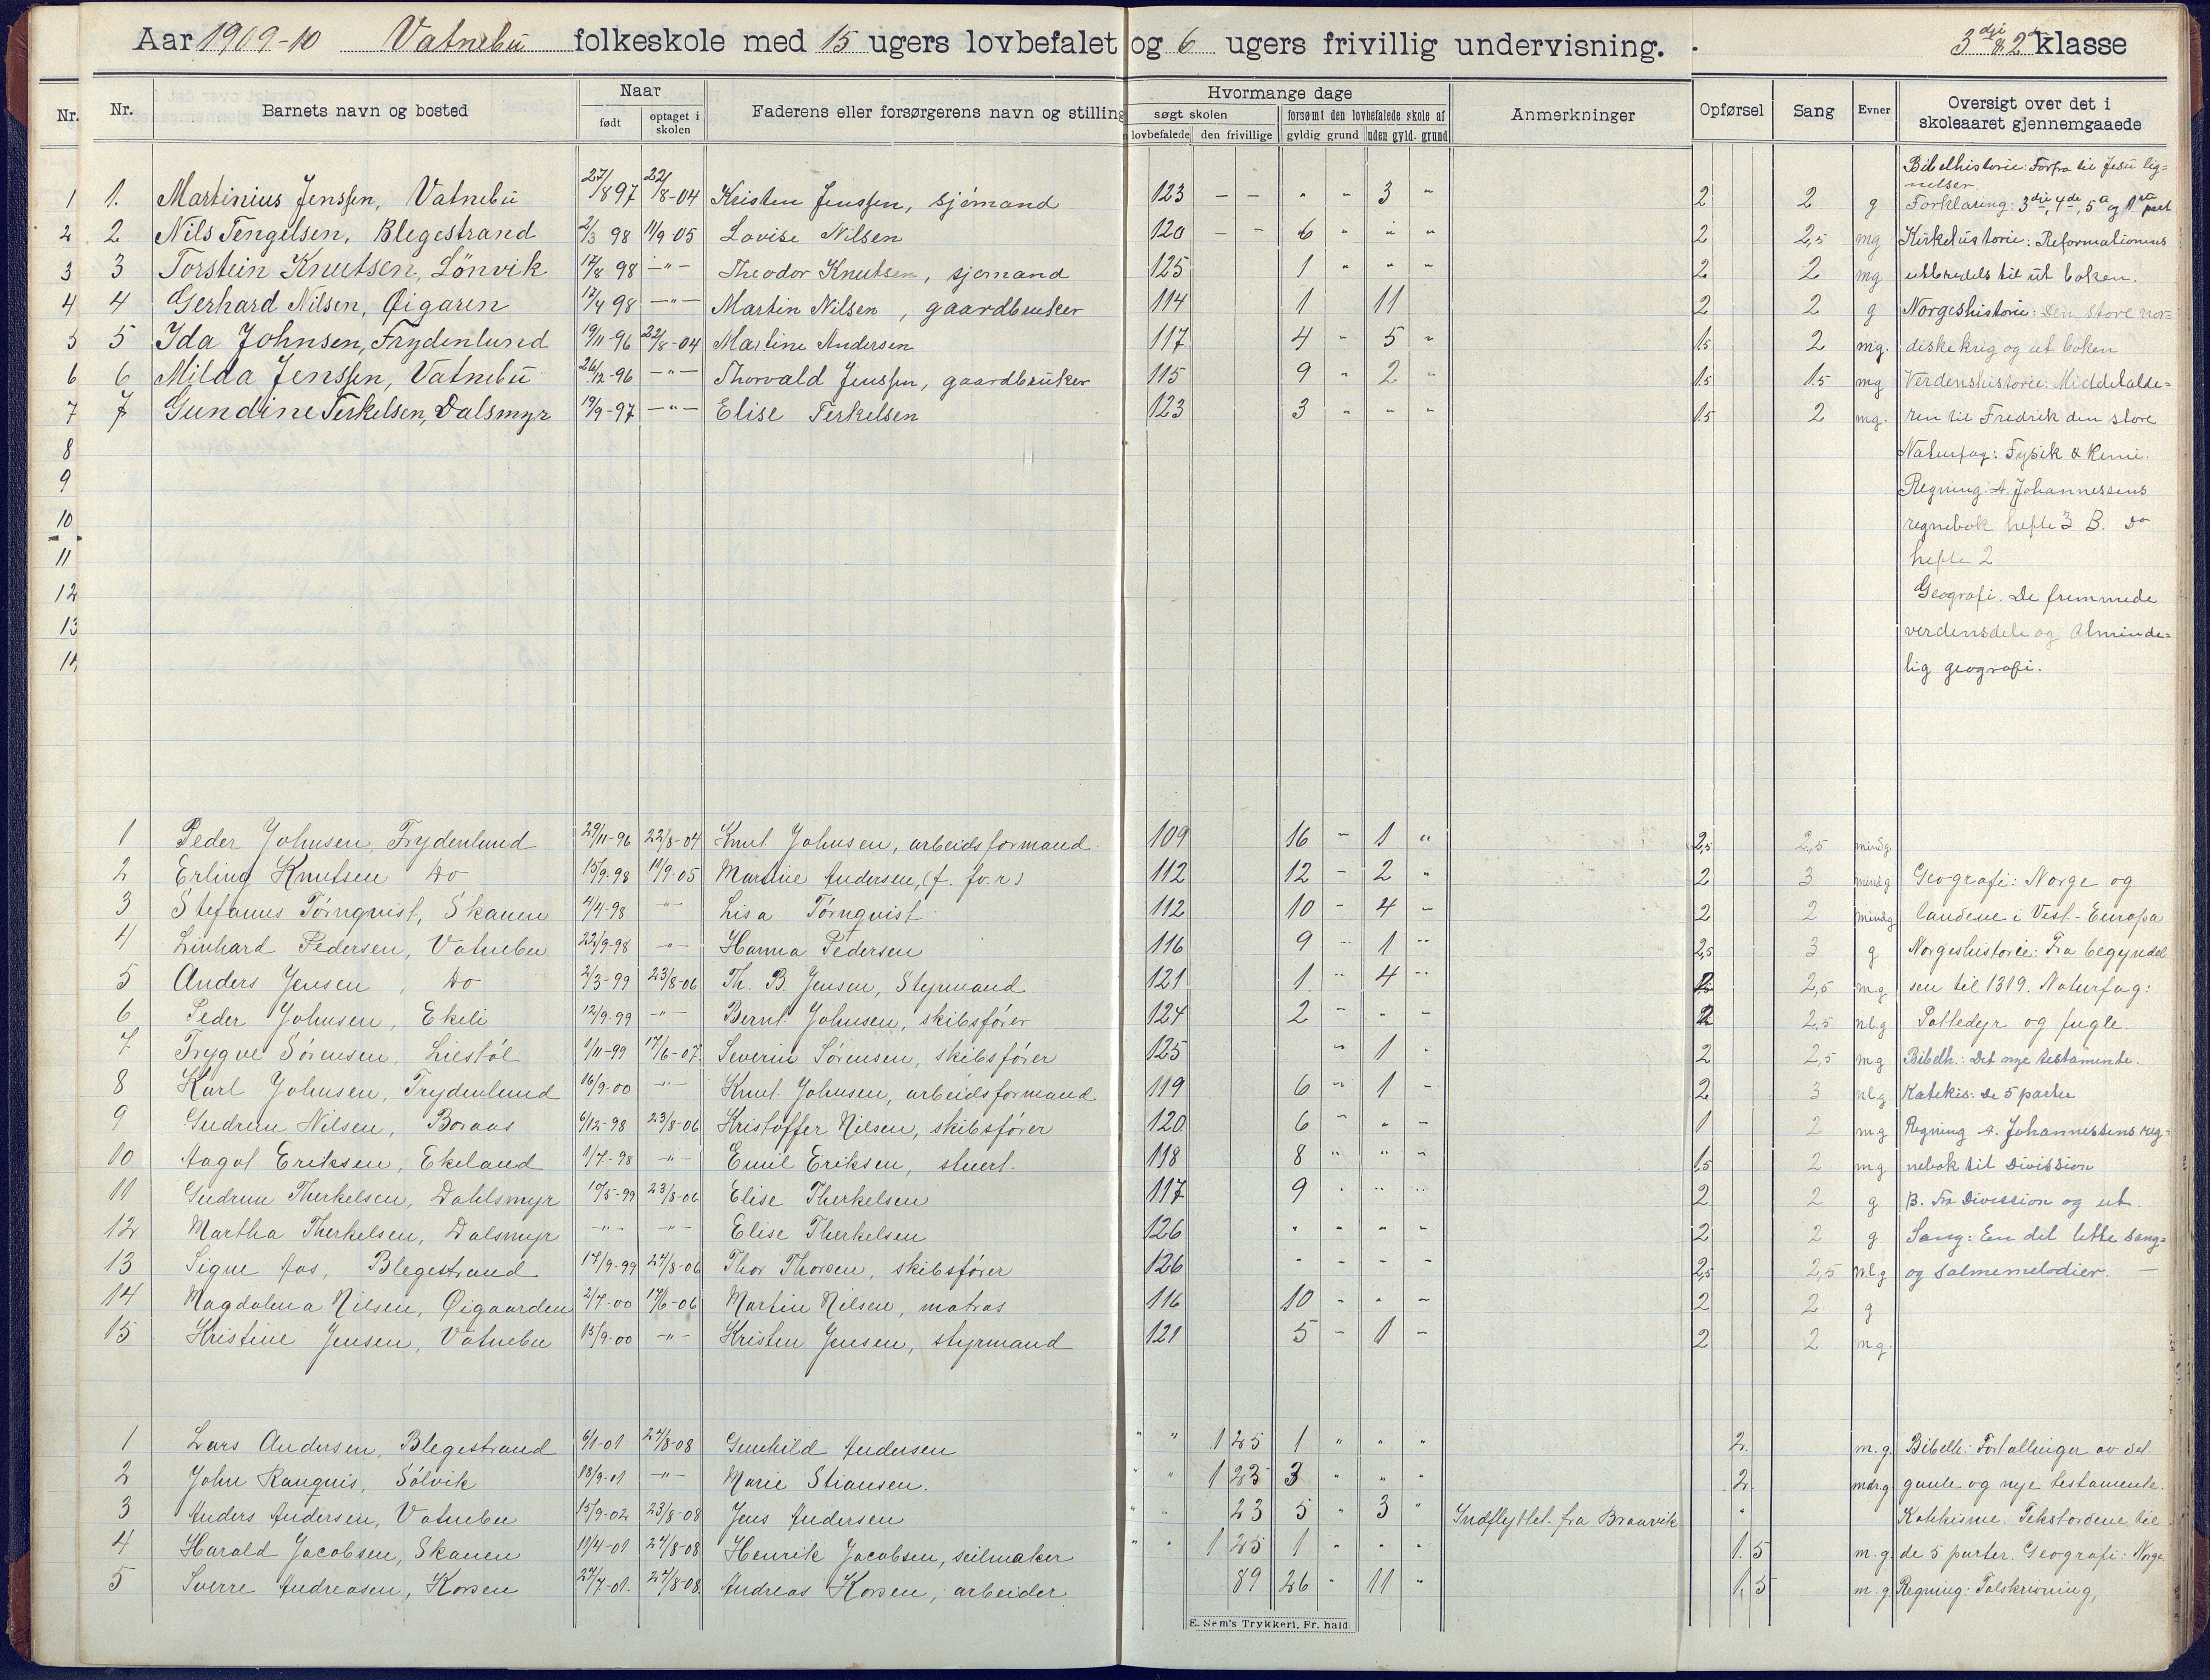 Aar 1909-10 Vatnebu folkeskole med 15 ugers lovbefalet og 6 ugers frivillig undervisning. 3die & 2 klasse
Nr. Nr. Barnets navn og bosted Naar født optaget i skolen Faderens eller forsørgerens navn og stilling Hvormange dage søgt skolen lovbefalede den frivillige forsømt den lovbefalede skole af gyldig grund uden gyld. grund Anmerkninger Opførsel Sang Evner Oversigt over det i skoleaaret gjennemgaaede
Bibelhistorie: Forfra til Jesu lig=
nelser.
1 1. Martinius Jenssen, Vatnebu 27/8 97 22/8-04 Kristen Jenssen, sjömand 123 – – " " 3 " 2 2 g Forklaring: 3die, 4de, 5te og 1ste part
2 2 Nils Tengelsen, Blegestrand 2/3 98 11/9 05 Lovise Nilsen 120 – – 6 " " " 2 2,5 mg Kirkehistorie: Reformationens
3 3 Torstein Knutsen, Lönvik 17/8 98 –"– Theodor Knutsen, sjömand 125 1 " " " 2 2 mg utbredels til ut boken.
4 4 Gerhard Nilsen, Øigaren 17/4 98 –"– Martin Nilsen, gaardbruker 114 1 11 2 2 g Norgeshistorie: Den store nor=
5 5 Ida Johnsen, Frydenlund 19/11-96 22/8-04 Martine Andersen 117 4 " 5 " 1,5 2 mg. diske krig og ut boken
6 6 Milda Jenssen, Vatnebu 26/12-96 –"– Thorvald Jenssen, gaardbruker 115 9 " 2 " 1.5 1.5 mg Verdenshistorie: Middelalde=
7 7 Gundine Terkelsen, Dalsmyr 19/9-97 –"– Elise Terkelsen 123 3 " " " 1.5 2 mg. ren til Fredrik den store
8 Naturfag: Fysik & Kemi.
9 Regning: A. Johannessens
10 regnebok hefte 3 B. Do
11 hefte 2
12 Geografi. De fremmede
13 verdensdele og Alminde=
14 lig geografi.
1 Peder Johnsen, Frydenlund 29/11-96 22/8-04 Knut Johnsen, arbeidsformand. 109 16 " 1 " 2,5 2,5 mindg.
2 Erling Knutsen Do 15/9-98 11/9-05 Martine Andersen, (f. fv.r) 112 12 – 2 " 2 3 mindg Geografi: Norge og
3 Stefanus Törnqvist, Skanen 4/4-98 –"– Lisa Törnqvist 112 10 – 4 – 2 2 mindg landene i Vest-Europa
4 Linhard Pedersen, Vatnebu 22/9-98 –"– Hanna Pedersen 116 9 " 1 " 2,5 3 g Norgeshistorie: Fra begyndel
5 Anders Jensen, Do 2/3-99 23/8-06 Th. B. Jensen, Styrmand 121 1 " 4 " 2,5 m.g sen til 1319. Naturfag:
6 Peder Johnsen, Ekeli 12/9-99 –"– Bernt Johnsen, skibsfører 124 2 " " – 2 2,5 nl.g Pattedyr og fugle.
7 Trygve Sörensen, Liestöl 1/11-99 17/6-07. Severin Sörensen, skibsfører 125 " 1 " 2 2,5 mg Bibelh.: Det nye testamente.
8 Karl Johnsen, Frydenlund 16/9-00 –"– Knut Johnsen, arbeidsformand. 119 6 " 1 – 2 3 nl.g Katekis: De 5 parter
9 Gudrun Nilsen, Boraas 6/12-98 23/8-06 Kristoffer Nilsen, skibsfører 120 6 – " – 1 2 m.g Regning A. Johannessens reg=
10 Aagot Eriksen, Ekeland 1/7-98 –"– Emil Eriksen, stuert. 118 8 " " – 1,5 2 mg nebok til Division
11 Gudrun Therkelsen, Dahlsmyr 10/5-99 23/8-06 Elise Therkelsen 117 9 " " " 2 2 g B. Fra Division og ut.
12 Martha Therkelsen, Dalsmyr –"– –"– Elise Therkelsen 126 " " " – 2 2 g Sang: En del lette sang=
13 Signe Aas, Blegestrand 17/9-99 24/8-06 Thor Thorsen, skibsfører 126 – – – – 2,5 2,5 nl.g og salmemelodier. –
14 Magdalena Nilsen, Øigaarden 2/7-00 17/6-06 Martin Nilsen, matros 116 10 – " – 2 2 g
15 Kristine Jensen, Vatnebu 15/9-00 –"– Kristen Jensen, styrmand 121 5 – 1 – 2 2 m.g.
1 Lars Andersen, Blegestrand 6/1-01 24/8-08 Gunhild Andersen " " 125 1 " " " 2. m.g. Bibelh: Fortællinger av det
2 John Ranqvis, Sölvik 18/9-01 –"– Marie Stiansen. " " 123 3 " " " 2 mdr.g gamle og nye testamente.
3 Anders Andersen, Vatnebu 15/9-02 23/8-08 Jens Andersen " " 23 5 " 3 " Indflyttet fra Braavik " Katekisme. Tekstordene til
4 Harald Jacobsen, Skanen 19/4-01 24/8-08 Henrik Jacobsen, seilmaker " " 125 1 " " " 1.5 m.g. de 5 parter. Geografi: Norge.
5 Sverre Andreasen, Korsen 27/7-01. 24/8-08. Andreas Korsen, arbeider. 89 26 " 11 " 1,5 m.g Regning: Talskrivning,
E. Sem's Trykkeri, Fr. hald.